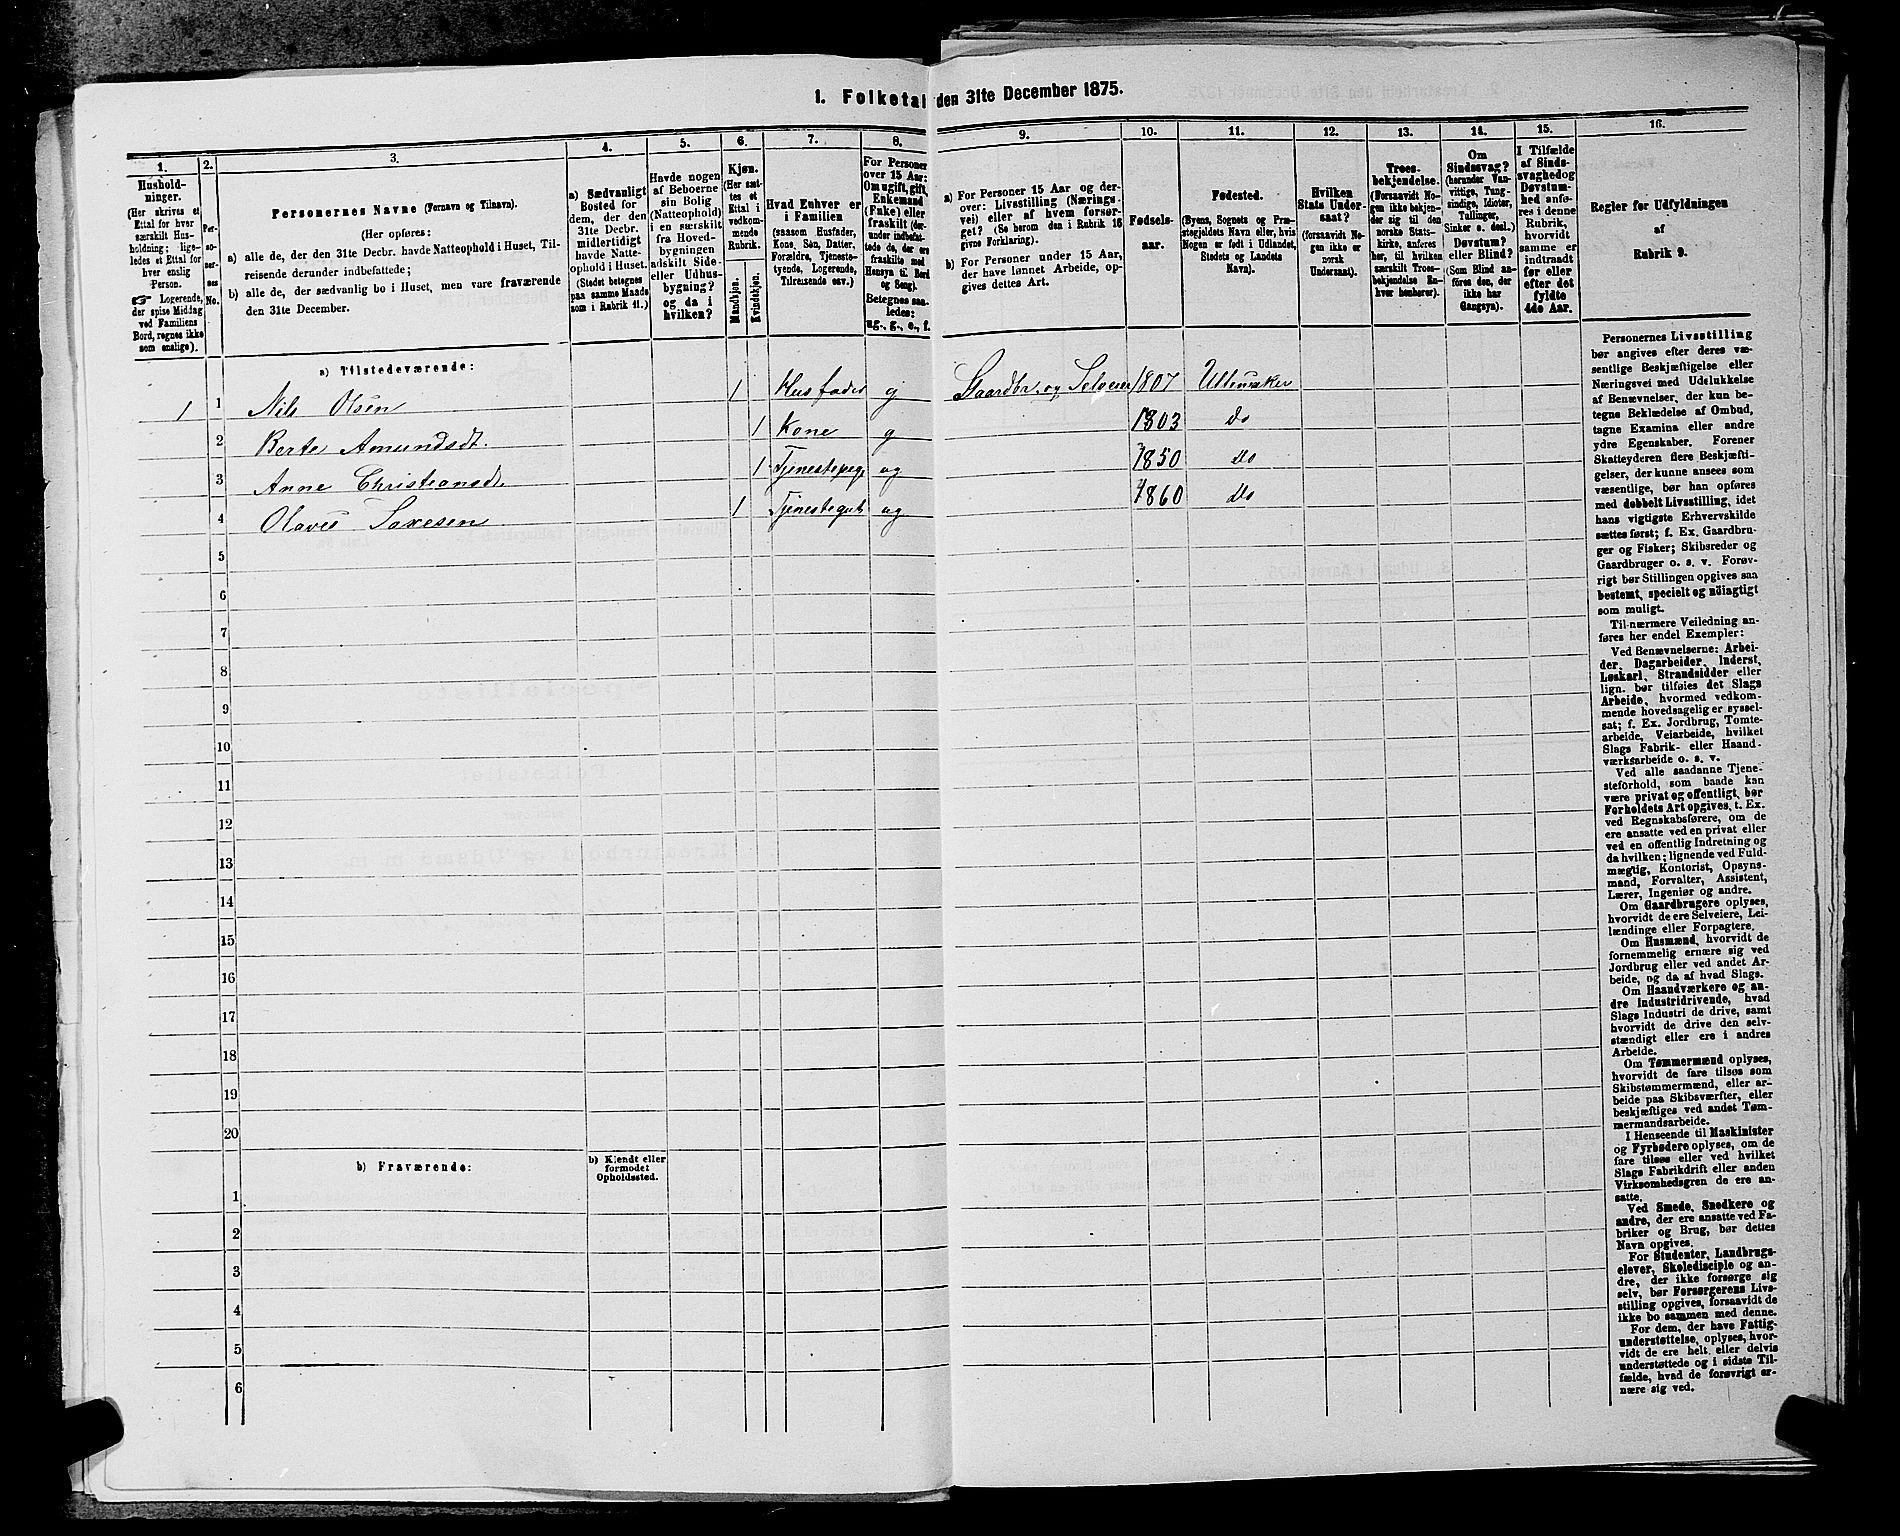 1. Folketal den 31te December 1875.
1.
Hushold-
ninger.
(Her skrives et
Ettal for hver
særskilt Hus-
holdning; lige-
ledes et Ettal for
hver enslig
Person.
☞ Logerende,
der spise Middag
ved Familiens
Bord, regnes ikke
som enslige).
2.
Per-
so-
ner-
nes
No.
3.
Personernes Navne (Fornavn og Tilnavn).
(Her opføres:
a) alle de, der den 31te Decbr. havde Natteophold i Huset, Til-
reisende derunder indbefattede;
b) alle de, der sædvanlig bo i Huset, men vare fraværende
den 31te December.
4.
a) Sædvanligt
Bosted for
dem, der den
31te Decbr.
midlertidigt
havde Natte-
ophold i Huset.
(Stedet betegnes
paa samme Maade
som i Rubrik 11.)
5.
Havde nogen
af Beboerne
sin Bolig
(Natteophold)
i en særskilt
fra Hoved-
bygningen
adskilt Side-
eller Udhus-
bygning?
og da i
hvilken?
6.
Kjøn.
(Her sæt-
tes et
Ettal i
vedkom-
mende
Rubrik.
Mandkjøn.
Kvindekjøn.
7.
Hvad Enhver er
i Familien
(saasom Husfader,
Kone, Søn, Datter,
Forældre, Tjeneste-
tyende, Logerende,
Tilreisende osv.)
8.
For Personer
over 15 Aar:
Om ugift, gift,
Enkemand
(Enke) eller
fraskilt (der-
under indbefat-
tede de, der ere
fraskilte med
Hensyn til Bord
og Seng).
Betegnes saa-
ledes:
ug., g., e., f.
9.
a) For Personer 15 Aar og der-
over: Livsstilling (Nærings-
vei) eller af hvem forsør-
get? (Se herom den i Rubrik 16
givne Forklaring).
b) For Personer under 15 Aar,
der have lønnet Arbeide, op-
gives dettes Art.
10.
Fødsels-
aar.
11.
Fødested.
(Byens, Sognets og Præ-
stegjeldets Navn eller, hvis
Nogen er født i Udlandet,
Stedets og Landets
Navn).
12.
Hvilken
Stats Under-
saat?
(forsaavidt No-
gen ikke er
norsk
Undersaat).
13.
Troes-
bekjendelse.
(Forsaavidt No-
gen ikke bekjen-
der sig til den
norske Stats-
kirke, anføres
her, til hvilken
særskilt Troes-
bekjendelse En-
hver henhører).
14.
Om
Sindssvag?
(herunder Van-
vittige, Tung-
sindige, Idioter,
Tullinger,
Sinker o. desl.)
Døvstum?
eller Blind?
(Som Blind an-
føres den, der
ikke har
Gangsyn).
15.
I Tilfælde
af Sinds-
svaghed og
Døvstum-
hed anfø-
res i denne
Rubrik,
hvorvidt
samme er
indtraadt
før eller
efter det
fyldte
4de Aar.
16.
Regler for Udfyldningen
af
Rubrik 9.
a) Tilstedeværende:
1 1 Nils Olsen 1 Husfader g Gaardbr. og Selveier 1807 Ullensaker
2 Berte Amundsdt. 1 Kone g 1803 Do
3 Anne Christiansdt. 1 Tjenestepige ug 1850 Do
4 Olaves Saxesen 1 Tjenestegut ug 1860 Do
5
6
7
8
9
10
11
12
13
14
15
16
17
18
19
20
b) Fraværende:
b) Kjendt eller
formodet
Opholdssted.
1
2
3
4
5
6
Personernes Livsstilling
bør angives efter deres væ-
sentlige Beskjæftigelse eller
Næringsvei med Udelukkelse
af Benævnelser, der kun be-
tegne Beklædelse af Ombud,
tagne Examina eller andre
ydre Egenskaber. Forener
Skatteyderen flere Beskjæfti-
gelser, der kunne ansees som
væsentlige, bør han opføres
med dobbelt Livsstilling, idet
hans vigtigste Erhvervskilde
sættes først; f. Ex. Gaardbru-
ger og Fisker; Skibsreder og
Gaardbruger o. s. v. Forøv-
rigt bør Stillingen opgives saa
bestemt, specielt og nöiagtigt
som muligt.
Til nærmere Veiledning an-
føres her endel Exempler:
Ved Benævnelserne: Arbei-
der, Dagarbeider, Inderst,
Løskarl, Strandsidder eller
lign. bør tilføies det Slags
Arbeide, hvormed vedkom-
mende hovedsagelig er syssel-
sat; f. Ex. Jordbrug, Tomte-
arbeide, Veiarbeide, hvilket
Slags Fabrik- eller Haand-
værksarbeide o. s. v.
Ved alle saadanne Tjene-
steforhold, som baade kan
være privat og offentligt, bør
Forholdets Art opgives, t. Ex.
ved Regnskabsførere, om de
ere ansatte ved en privat eller
ved en offentlig Indretning og
da hvilken; lignende ved Fuld-
mægtig, Kontorist, Opsyns-
mand, Forvalter, Assistent,
Lærer, Ingeniør og andre.
Om Gaardbrugere oplyses,
hvorvidt de ere Selveiere, Lei-
lændinge eller Forpagtere.
Om Husmænd, hvorvidt de
fornemmelig ernære sig ved
Jordbrug eller ved andet Ar-
beide, og da af hvad Slags.
Om Haandværkere og an-
dre Industridrivende, hvad
Slags Industri de drive, samt
hvorvidt de drive den selv-
stændigt eller ere i andres
Arbeide.
Om Tømmermænd oplyses,
hvorvidt de fare tilsøs som
Skibstømmermænd, eller ar-
beide paa Skibsværfter, eller
beskjæftiges ved andet Tøm-
mermandsarbeide.
I Henseende til Maskinister
og Fyrbødere oplyses, om de
fare tilsøs eller ved hvilket
Slags Fabrikdrift eller anden
Virksomhedsgren de ere an-
satte.
Ved Smede, Snedkere og
andre, der ere ansatte ved Fa-
briker og Brug, bør dettes
Navn opgives.
For Studenter, Landbrugs-
elever, Skoledisciple og an-
dre, der ikke forsørge sig
selv, bør Forsørgerens Livs-
stilling opgives, forsaavidt de
ikke bo sammen med denne.
For dem, der have Fattig-
understøttelse, oplyses, hvor-
vidt de ere helt eller delvis
understøttede og i sidste Til-
fælde, hvad de forøvrigt er-
nære sig ved.